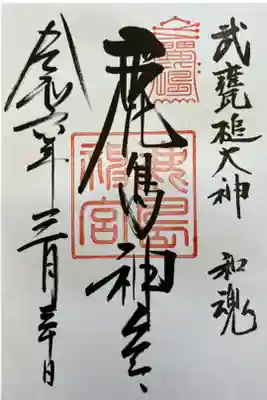 武甕槌大神 和魂
鹿島神宮
鹿島神宮
令和六年三月三十日